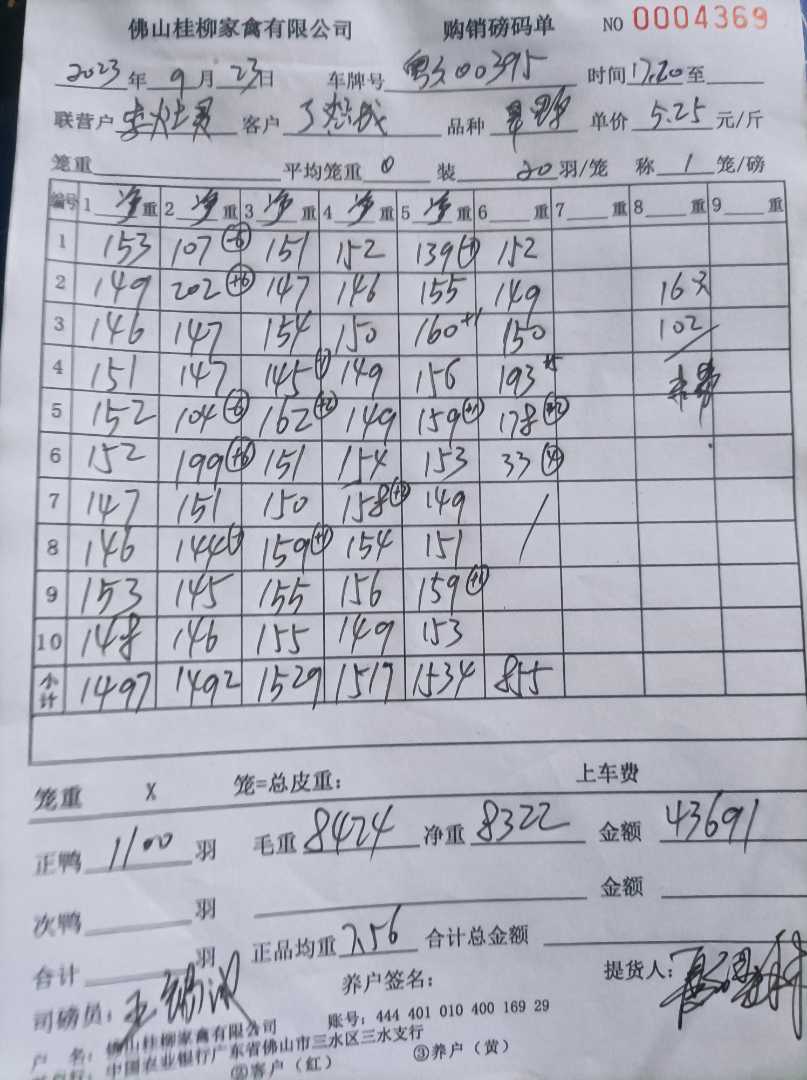 佛山桂柳家禽有限公司 购销磅码单 NO 0004369
2023年9月23日 车牌号 00395 时间17.20至
联营户 客户 品种 单价 5.25 元/斤
笼重 平均笼重 0 装 20羽/笼 称 1 笼/磅
编号 1 净重 2 净重 3 净重 4 净重 5 净重 6 重 7 重 8 重 9 重
1 153 107 -6 151 152 139 152
2 149 202 +6 147 146 155 149 16只
3 146 147 154 150 160 +1 150 102
4 151 147 145 149 156 193 +5
5 152 104 -6 162 +2 149 159 +1 178
6 152 199 +6 151 154 153 33
7 147 151 150 158 149
8 146 144 159 +1 154 151
9 153 145 155 156 159 +1
10 148 146 155 149 153
小计 1497 1492 1529 1517 1534 855
笼重 X 笼=总皮重: 上车费
正鸭 1100 羽 毛重 8424 净重 8322 金额 43691
次鸭 羽 金额
合计 羽 正品均重 7.56 合计总金额
司磅员: 养户签名: 提货人:
户 名: 佛山桂柳家禽有限公司 账号: 444 401 010 400 169 29
中国农业银行广东省佛山市三水区三水支行
②客户（红） ③养户（黄）